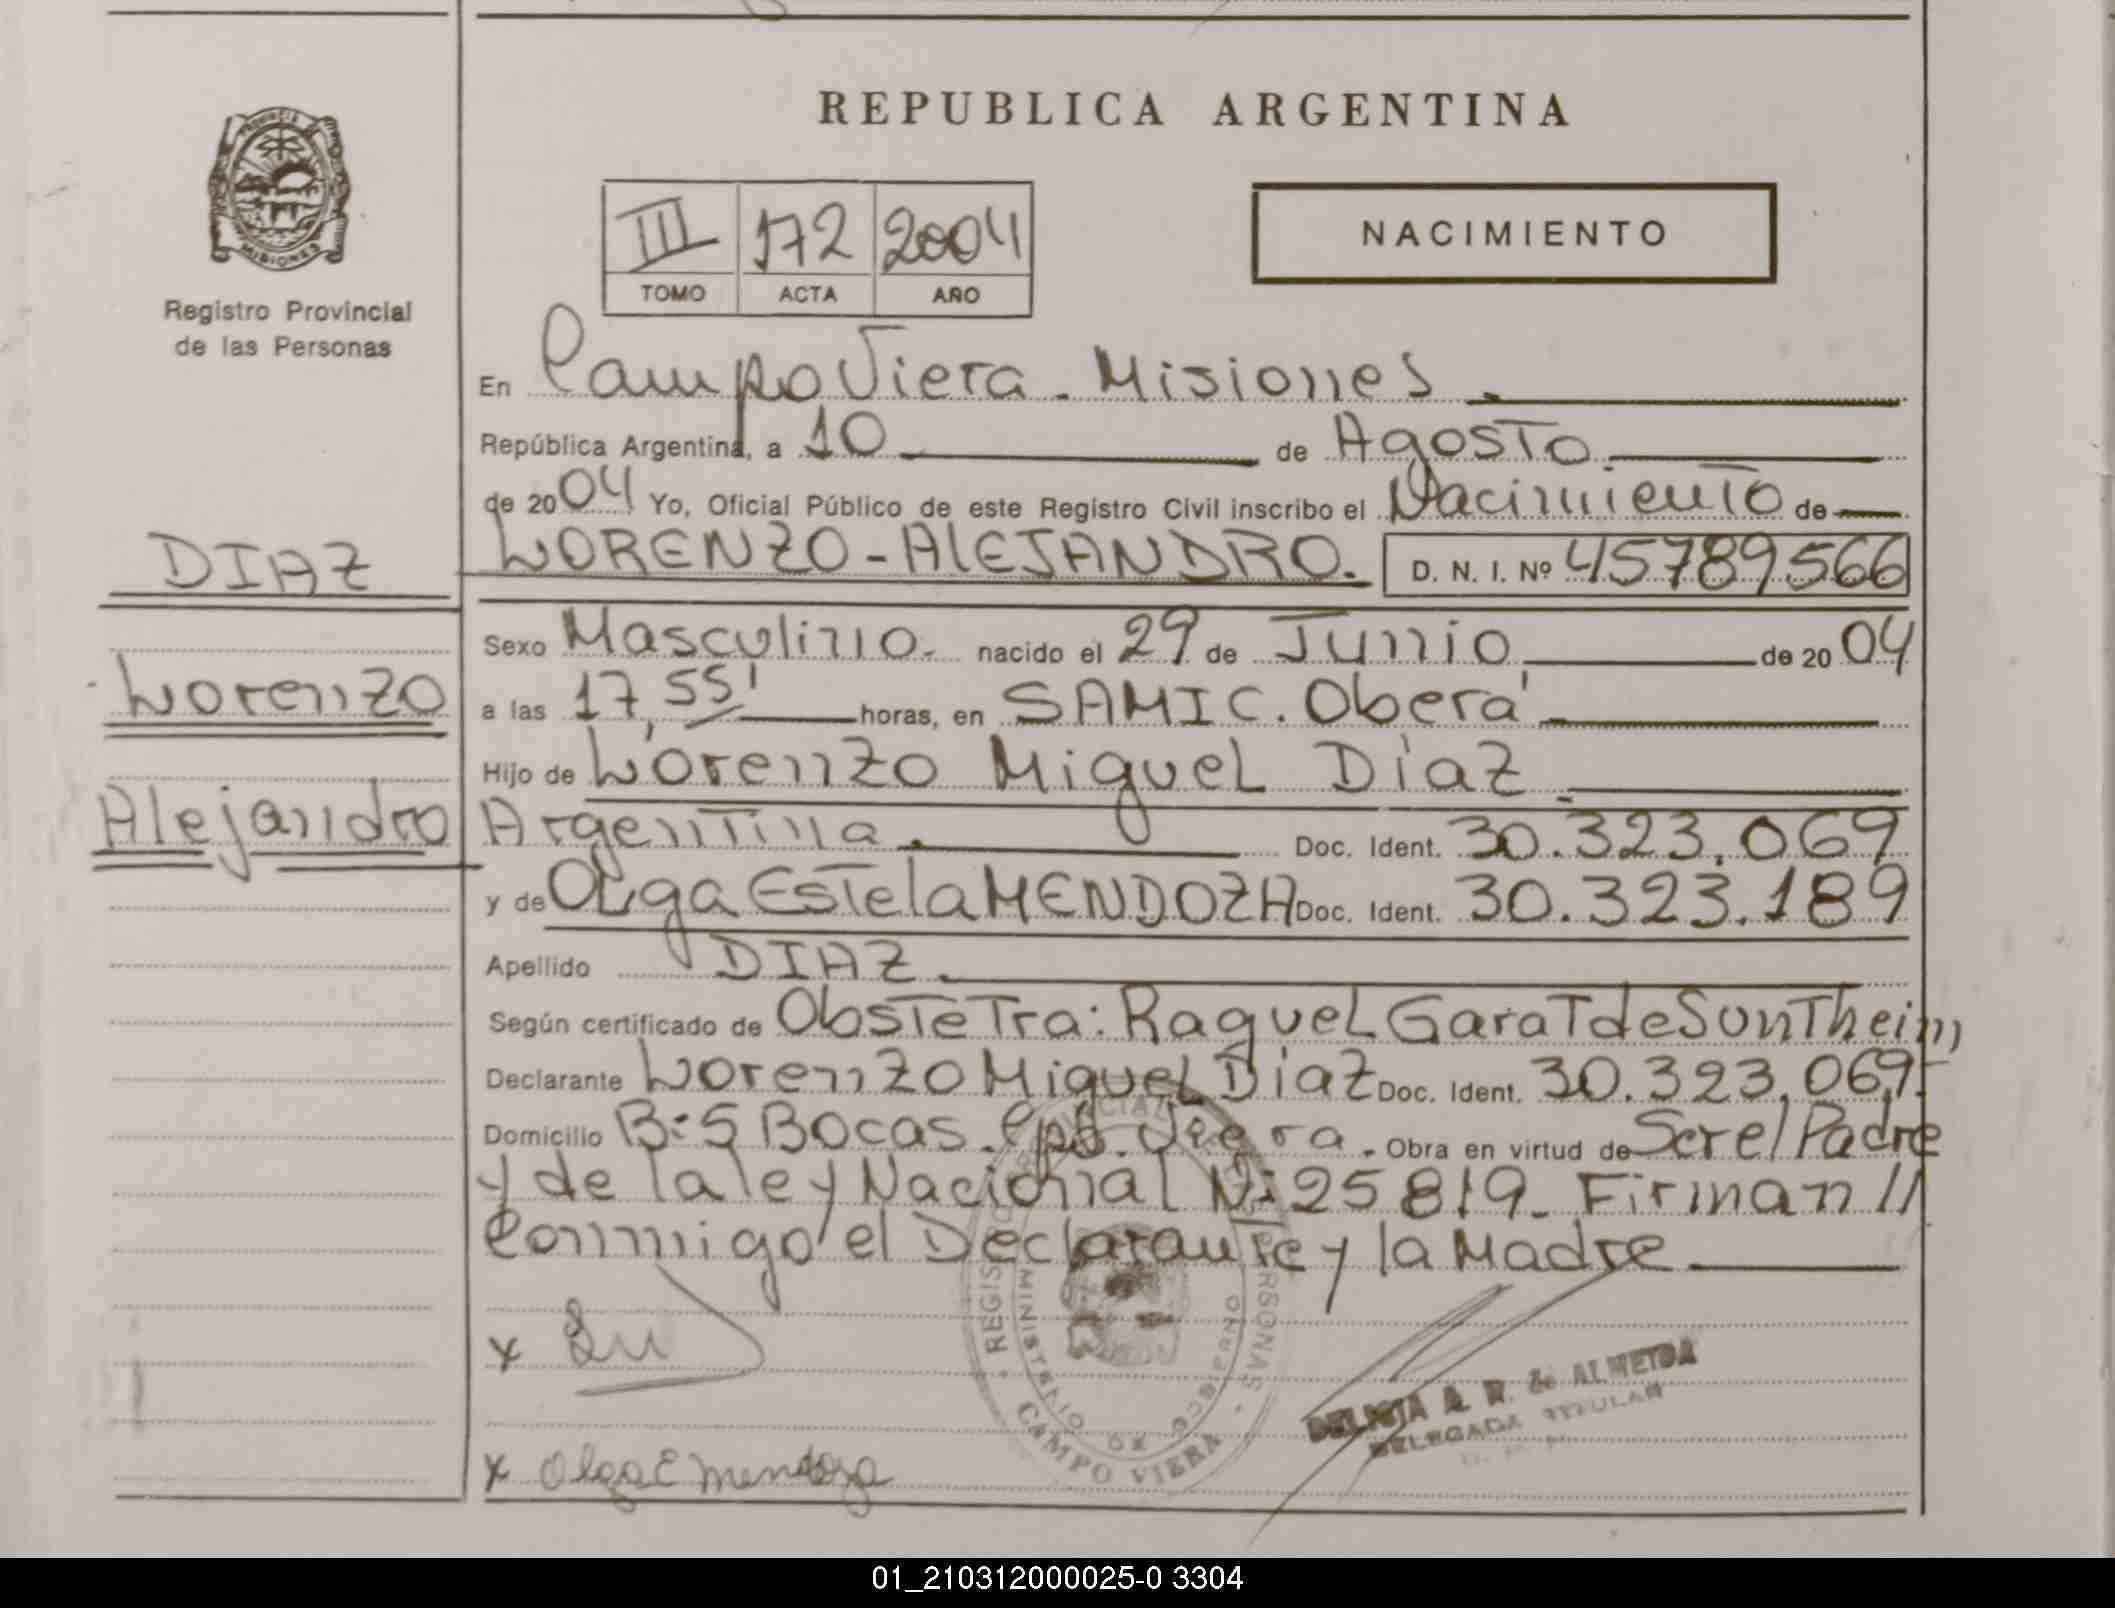 REPUBLICA ARGENTINA
PROVINCIA DE
MISIONES
Registro Provincial
de las Personas
III 172 2004
TOMO ACTA AÑO
NACIMIENTO
En Campo Viera - Misiones.
República Argentina, a 10 de Agosto.
de 2004 Yo, Oficial Público de este Registro Civil inscribo el Nacimiento de
DIAZ
LORENZO - AlEJANDRO. D. N. I. Nº 45789566
Sexo Masculino. nacido el 29 de Junio de 2004
Lorenzo
a las 17,55' horas, en SAMIC. Oberá
Hijo de Lorenzo Miguel Díaz
Alejandro
Argentina. Doc. Ident. 30.323.069
y de OLga Estela MENDOZA Doc. Ident. 30.323.189
Apellido DIAZ.
Según certificado de Obstetra: Raquel Garat de Suntheim
Declarante Lorenzo Miguel Díaz Doc. Ident. 30.323.069-
Domicilio B: 5 Bocas. Cpo. Viera. Obra en virtud de Ser el Padre
y de la ley Nacional Nº 25819 - Firman //
Conmigo el Declarante y la Madre
x
x Olga E Mendoza
REGISTRO PROVINCIAL DE LAS PERSONAS
MINISTERIO DE GOBIERNO
CAMPO VIERA
DELICIA A. R. de ALMEIDA
DELEGADA TITULAR
01_210312000025-0 3304